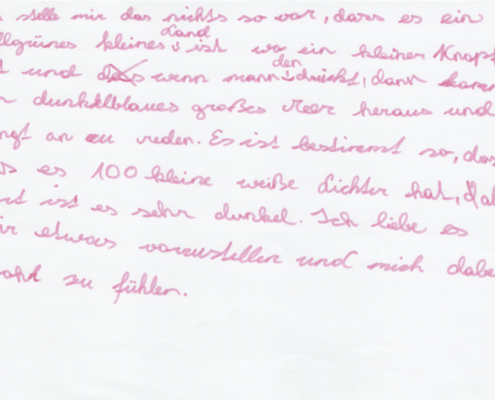 stelle mir das nichts so vor, dass es ein
llgrünes kleines Land ist wo ein kleiner Knopf
t und wenn mann den drückt, dann kommt
n dunkelblaues großes Meer heraus und
ngt an zu reden. Es ist bestimmt so, das
s es 100 kleine weiße Lichter hat,
st ist es sehr dunkel. Ich liebe es
ir etwas vorzustellen und mich dabe
wohl zu fühlen.